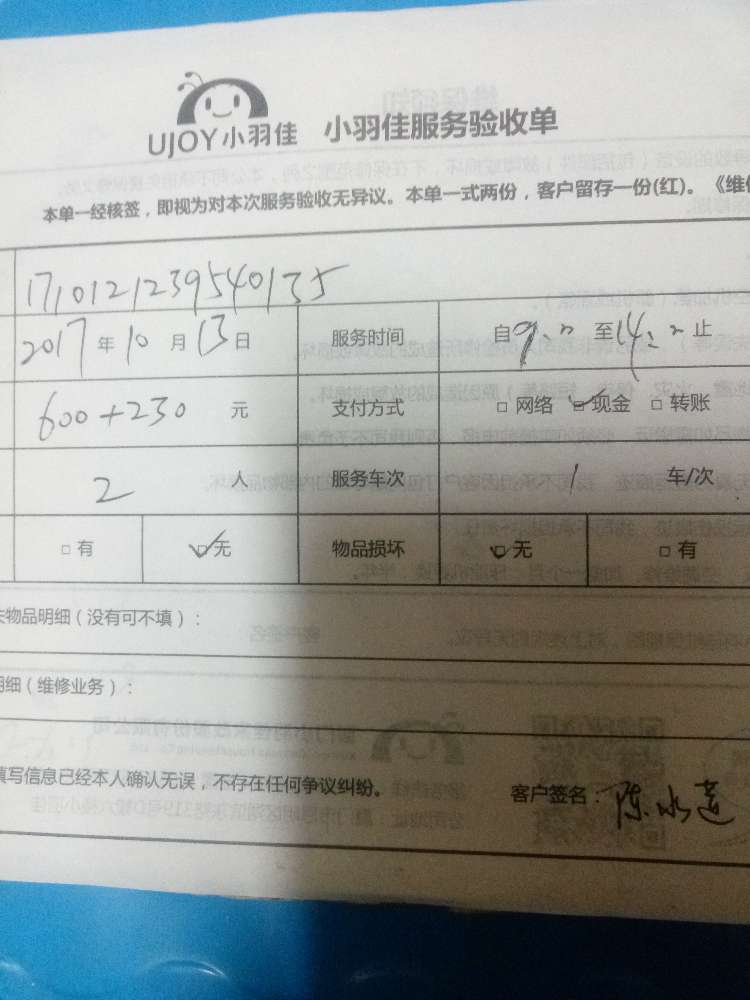 UJOY小羽佳 小羽佳服务验收单
本单一经核签，即视为对本次服务验收无异议。本单一式两份，客户留存一份(红)。《维
1710121239540135
2017年10月13日 服务时间 自9:00至14:00止
600+230 元 支付方式 □ 网络 ☑现金 □ 转账
2 人 服务车次 1 车/次
□ 有 ☑无 物品损坏 ☑无 □ 有
物品明细（没有可不填）：
明细（维修业务）：
填写信息已经本人确认无误，不存在任何争议纠纷。 客户签名：陈水莲